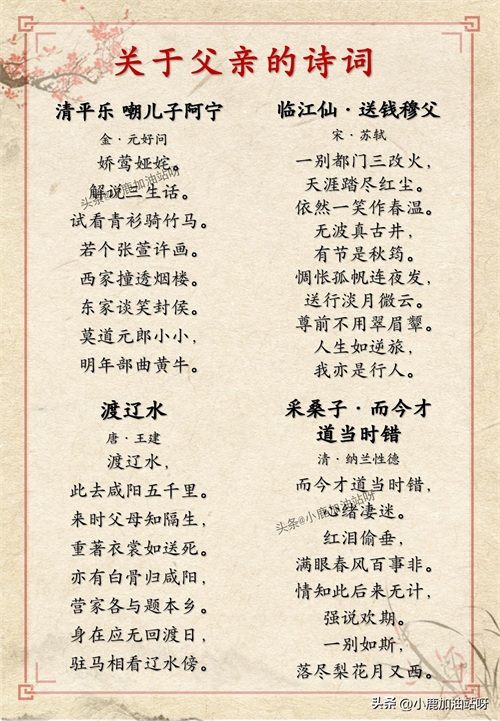 关于父亲的诗词
清平乐 嘲儿子阿宁
金·元好问
娇莺娅姹。
解说三生话。
试看青衫骑竹马。
若个张萱许画。
西家撞透烟楼。
东家谈笑封侯。
莫道元郎小小，
明年部曲黄牛。
临江仙·送钱穆父
宋·苏轼
一别都门三改火，
天涯踏尽红尘。
依然一笑作春温。
无波真古井，
有节是秋筠。
惆怅孤帆连夜发，
送行淡月微云。
尊前不用翠眉颦。
人生如逆旅，
我亦是行人。
渡辽水
唐·王建
渡辽水，
此去咸阳五千里。
来时父母知隔生，
重著衣裳如送死。
亦有白骨归咸阳，
营家各与题本乡。
身在应无回渡日，
驻马相看辽水傍。
采桑子·而今才
道当时错
清·纳兰性德
而今才道当时错，
心绪凄迷。
红泪偷垂，
满眼春风百事非。
情知此后来无计，
强说欢期。
一别如斯，
落尽梨花月又西。
头条@小鹿加油站呀
头条@小鹿加油站呀
头条@小鹿加油站呀